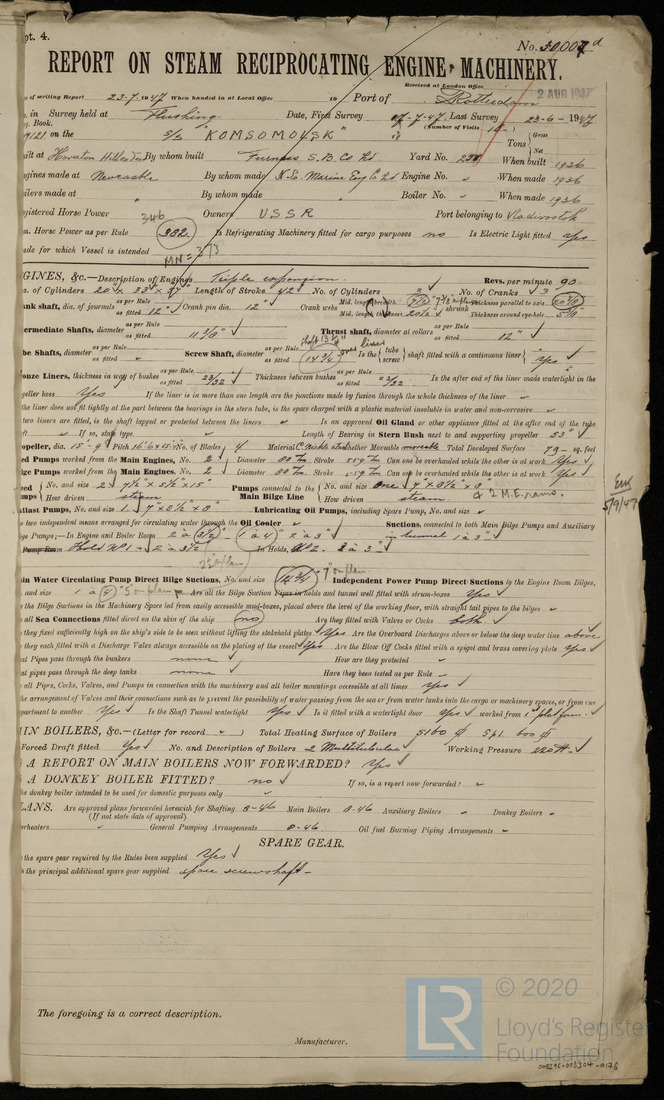 pt. 4.
No. 30007d
REPORT ON STEAM RECIPROCATING ENGINE MACHINERY.
Received at London Office
2 AUG 1947
of writing Report 23-7-1947 When handed in at Local Office 19 Port of Rotterdam
in Survey held at Flushing. Date, First Survey 7-47 Last Survey 23-6-1947
Book. (Number of Visits
on the s/s "KOMSOMOLSK" Tons Gross Net
By whom built Furness S.B. Co Ltd Yard No. When built 1936
ngines made at Newcastle By whom made N.E. Marine Eng Co Ltd Engine No. When made 1936
oilers made at By whom made Boiler No. When made 1936
egistered Horse Power Owners USSR Port belonging to Vladivostok
346
m. Horse Power as per Rule 382. Is Refrigerating Machinery fitted for cargo purposes no Is Electric Light fitted yes
MN = 373
ade for which Vessel is intended
NGINES, &c.—Description of Engines Triple expansion. Revs. per minute 90
. of Cylinders 20" x 33" x 47" Length of Stroke 42" No. of Cylinders 3 No. of Cranks 3
ank shaft, dia. of journals as per Rule as fitted 12" Crank pin dia. 12" Crank webs Mid. length breadth Mid. length thickness shrunk Thickness parallel to axis Thickness around eye-hole
termediate Shafts, diameter as per Rule as fitted Thrust shaft, diameter at collars as per Rule as fitted 12"
be Shafts, diameter as per Rule as fitted Screw Shaft, diameter as per Rule as fitted 14½" over liner Is the tube screw shaft fitted with a continuous liner Yes
onze Liners, thickness in way of bushes as per Rule as fitted 23/32 Thickness between bushes as per Rule as fitted Is the after end of the liner made watertight in the
peller boss Yes If the liner is in more than one length are the junctions made by fusion through the whole thickness of the liner
the liner does not fit tightly at the part between the bearings in the stern tube, is the space charged with a plastic material insoluble in water and non-corrosive
two liners are fitted, is the shaft lapped or protected between the liners Is an approved Oil Gland or other appliance fitted at the after end of the tube
ft If so, state type Length of Bearing in Stern Bush next to and supporting propeller 53"
opeller, dia. 15'-9" Pitch No. of Blades 4 Material whether Moveable moveable Total Developed Surface 79 sq. feet
ed Pumps worked from the Main Engines, No. 2 Diameter Stroke Can one be overhauled while the other is at work Yes
lge Pumps worked from the Main Engines, No. 2 Diameter Stroke Can one be overhauled while the other is at work Yes
eed umps No. and size 2. 7½" x 5½" x 15" How driven steam Pumps connected to the Main Bilge Line No. and size one. 7" x 8½" x 8" How driven steam & 2 M.E. rams.
Eng 5/9/47
allast Pumps, No. and size 1. 7" x 8½" x 8" Lubricating Oil Pumps, including Spare Pump, No. and size
e two independent means arranged for circulating water through the Oil Cooler Suctions, connected to both Main Bilge Pumps and Auxiliary
ge Pumps;—In Engine and Boiler Room 2 à 3½" 1 à 4" 2 à 3" in tunnel 1 à 3"
Pump Room Hold No 1 - 2 à 3½ In Holds, No 2. 2 à 3"
in Water Circulating Pump Direct Bilge Suctions, No. and size 7" on plan Independent Power Pump Direct Suctions to the Engine Room Bilges,
and size 1 à 4" 5" on plan Are all the Bilge Suction Pipes in holds and tunnel well fitted with strum-boxes Yes
the Bilge Suctions in the Machinery Space led from easily accessible mud-boxes, placed above the level of the working floor, with straight tail pipes to the bilges
all Sea Connections fitted direct on the skin of the ship no Are they fitted with Valves or Cocks both
they fixed sufficiently high on the ship's side to be seen without lifting the stokehold plates Yes Are the Overboard Discharges above or below the deep water line above
they each fitted with a Discharge Valve always accessible on the plating of the vessel Yes Are the Blow Off Cocks fitted with a spigot and brass covering plate Yes
at Pipes pass through the bunkers none How are they protected
at pipes pass through the deep tanks none Have they been tested as per Rule
all Pipes, Cocks, Valves, and Pumps in connection with the machinery and all boiler mountings accessible at all times yes
he arrangement of Valves and their connections such as to prevent the possibility of water passing from the sea or from water tanks into the cargo or machinery spaces, or from one
partment to another Yes Is the Shaft Tunnel watertight Yes Is it fitted with a watertight door Yes worked from 1st platform.
IN BOILERS, &c.—(Letter for record ) Total Heating Surface of Boilers 5160 ¢ Spl. 600 ¢
Forced Draft fitted Yes No. and Description of Boilers 2 Multitubular Working Pressure
A REPORT ON MAIN BOILERS NOW FORWARDED? Yes
A DONKEY BOILER FITTED? no If so, is a report now forwarded?
he donkey boiler intended to be used for domestic purposes only
LANS. Are approved plans forwarded herewith for Shafting 8-46 Main Boilers 8-46 Auxiliary Boilers Donkey Boilers
(If not state date of approval)
erheaters General Pumping Arrangements 8-46 Oil fuel Burning Piping Arrangements
SPARE GEAR.
the spare gear required by the Rules been supplied Yes
the principal additional spare gear supplied spare screwshaft
The foregoing is a correct description.
Manufacturer.
LR © 2020
Lloyd's Register
Foundation
008296-008304-0175